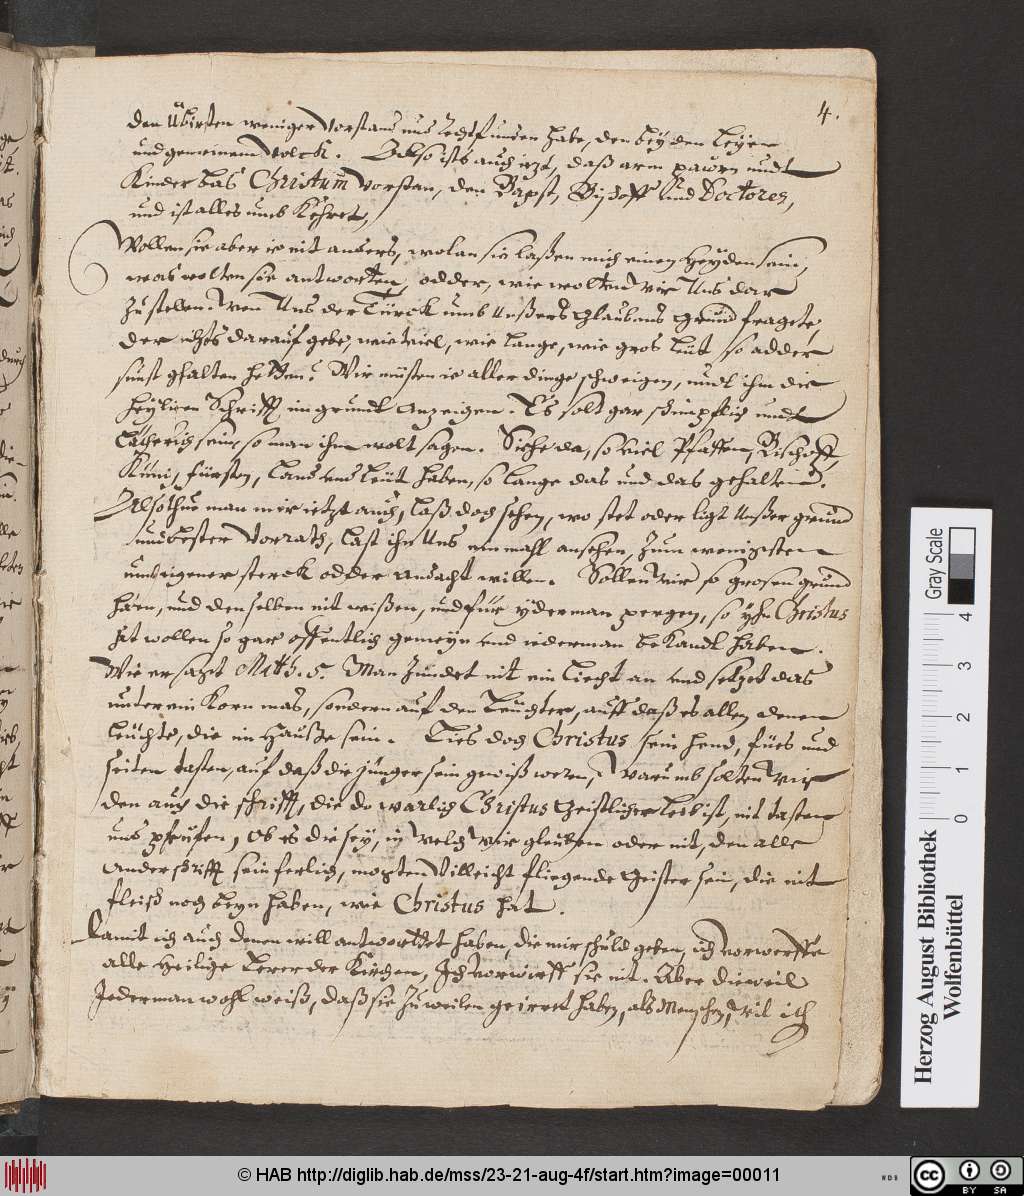 4.
den Übirsten weniger vorstand und Zechtfunden habe, den bey den Leyen
und gemeinem Volck. Also ists auch itzt, daß arm pawrn undt
Kinder bas Christum vorstan, den Bapst, Bischoff und Doctores,
und ist alles umb kehret,
Wollen sie aber ie nit anders, wolan sie laßen mich einen Heyden sein,
was wolten sie antworten, odder, wie wolten wir Uns dar
Zu stellen. wen Uns der Türck umb Unßers Glaubens Grund fragete,
der nichts darauf gebe, wie viel, wie lange, wie gros leüt so adder
sunst ghalten hetten? Wir müsten ie aller dinge schweigen, undt ihm die
heyligen Schrifft im grundt Anzeigen. Es solt gar schimpflich undt
lächerlich sein, so man ihm wolt sagen. Siehe da, so viel Pfaffen, Bischoff,
König, fürsten, Land und leüt haben, so lange das und das gehalten.
Also thue man mir itzt auch, laß doch sehen, wo stet oder ligt Unßer grund
und bester Vorrath, last ihn Uns einmahl ansehen, Zum wenigsten
umb eigener sterck odder andacht willen. Sollen wir so grosen grund
haben, und denselben nit wißen, und für yderman pergen, so yhn Christus
hat wollen so gar offentlich gemeyn und iederman bekandt haben.
Wie er sagt Math. 5. Man Zündet nit ein liecht an und setzet das
unter ein Korn mas, sondern auf den Leuchter, auff daß es allen denen
leüchte, die im Hauße sein. Lies doch Christus sein hend, füeß und
seiten tasten, auf daß die jünger sein gewiß weren, Warumb solten wir
den auch die schrifft, die do warlich Christus Geistlicher Leib ist, nit tasten
und prüfen, Ob es die sey, in welch wir gleuben oder nit, den alle
Ander schrifft sein ferlich, mochten Villeicht fliegende Geister sein, die nit
fleisch noch beyn haben, wie Christus hat.
Damit ich auch denen will antworttet haben, die mir schuld geben, ich vorwerffe
alle Heilige Lerer der Kirchen, Ich vorwirff sie nit. Aber dieweil
Jederman wohl weiß, daß sie Zuweilen geirret haben, als Menschen, wil ich
Herzog August Bibliothek
Wolfenbüttel
Gray Scale
0 1 2 3 4
© HAB http://diglib.hab.de/mss/23-21-aug-4f/start.htm?image=00011
cc BY SA